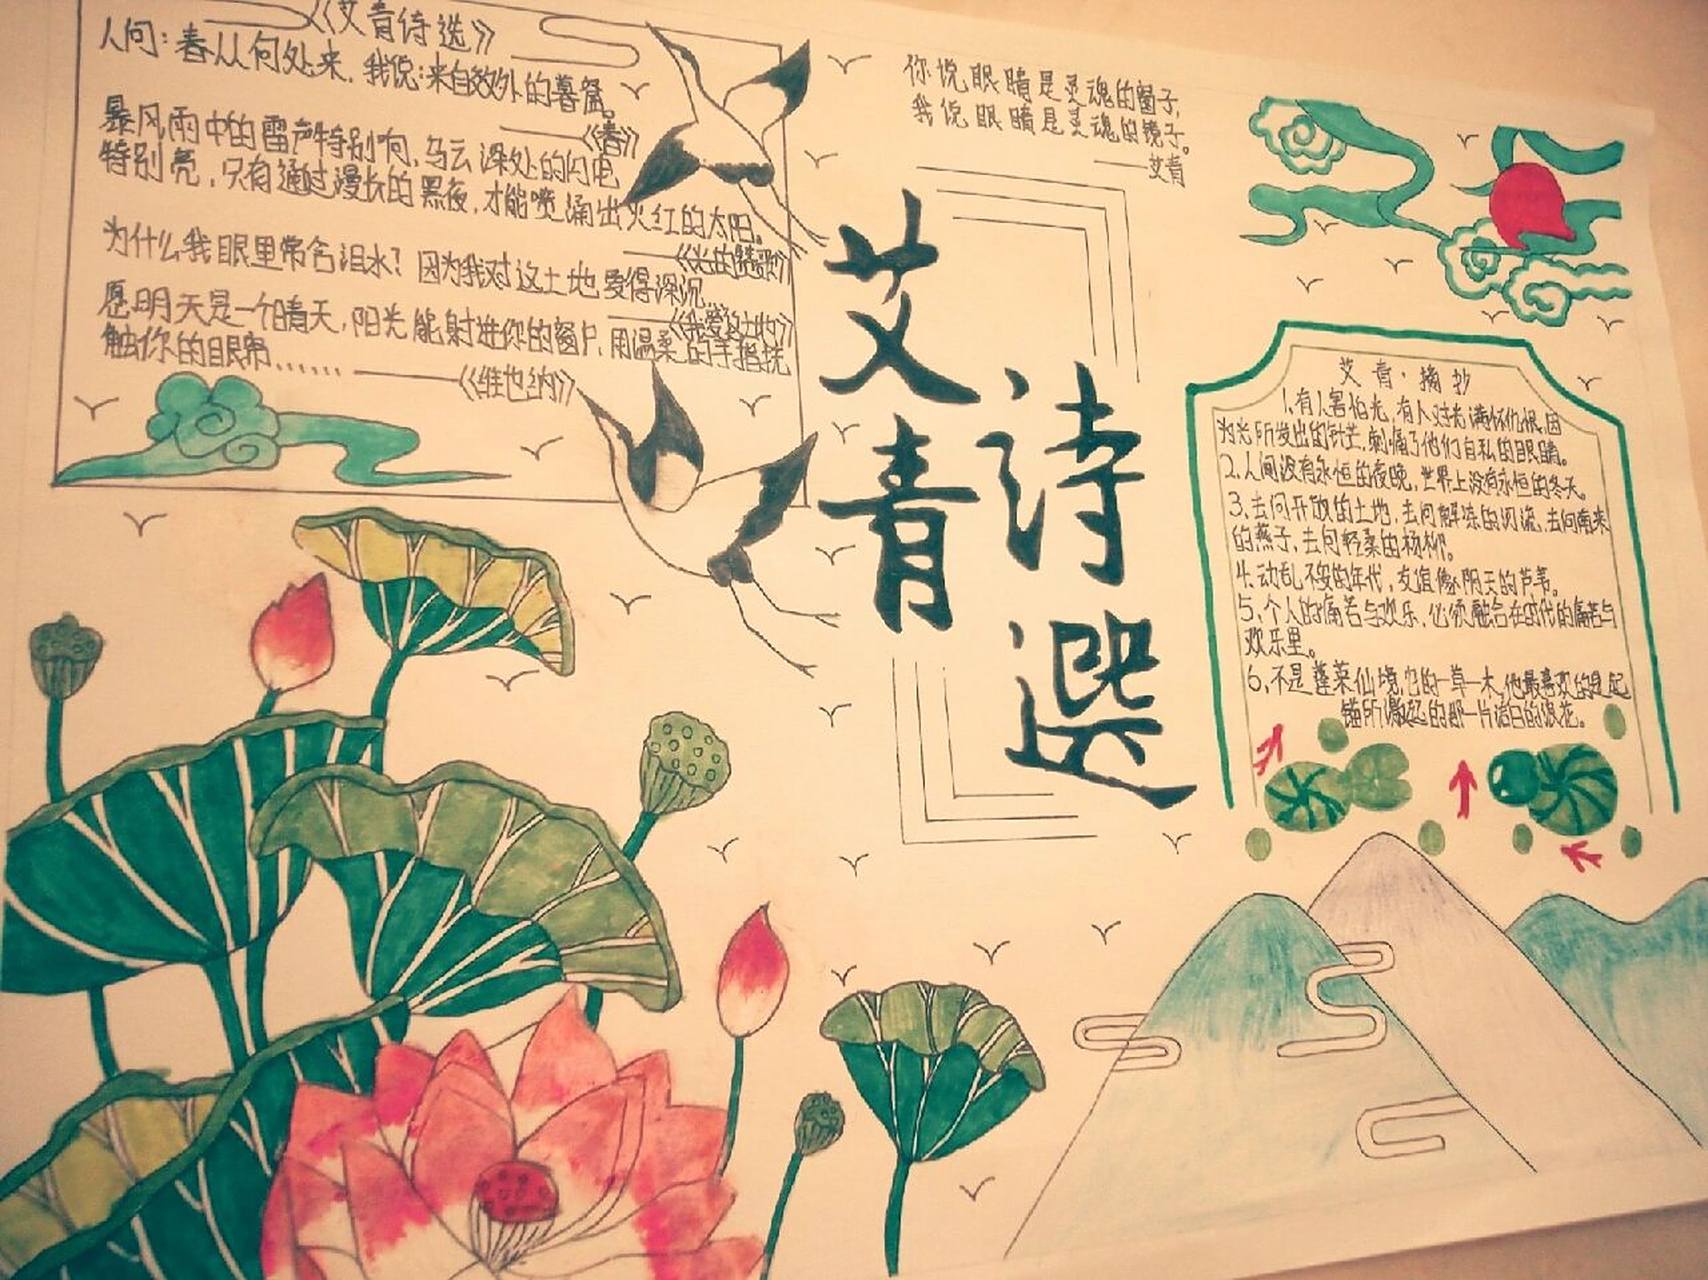 《艾青诗选》
人问:春从何处来,我说:来自郊外的暮窟。
——《春》
暴风雨中的雷声特别响,乌云深处的闪电
特别亮,只有通过漫长的黑夜,才能喷涌出火红的太阳。
——《光的赞歌》
为什么我眼里常含泪水?因为我对这土地爱得深沉
——《我爱这土地》
愿明天是一个晴天,阳光能射进你的窗户,用温柔的手指抚
触你的眼帘……
——《维也纳》
你说眼睛是灵魂的窗子,
我说眼睛是灵魂的镜子。
——艾青
艾青
诗選
艾青·摘抄
1.有人害怕光,有人对光满怀仇恨,因
为光所发出的针芒,刺痛了他们自私的眼睛。
2.人间没有永恒的夜晚,世界上没有永恒的冬天。
3.去问开放的土地,去问解冻的河流,去问南来
的燕子,去问轻柔的杨柳。
4.动乱不安的年代,友谊像阴天的芦苇。
5.个人的痛苦与欢乐,必须融合在时代的痛苦与
欢乐里。
6.不是蓬莱仙境,它的一草一木,他最喜欢的是起
锚所激起的那一片洁白的浪花。